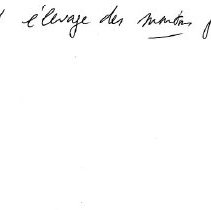 l'élevage des moutons